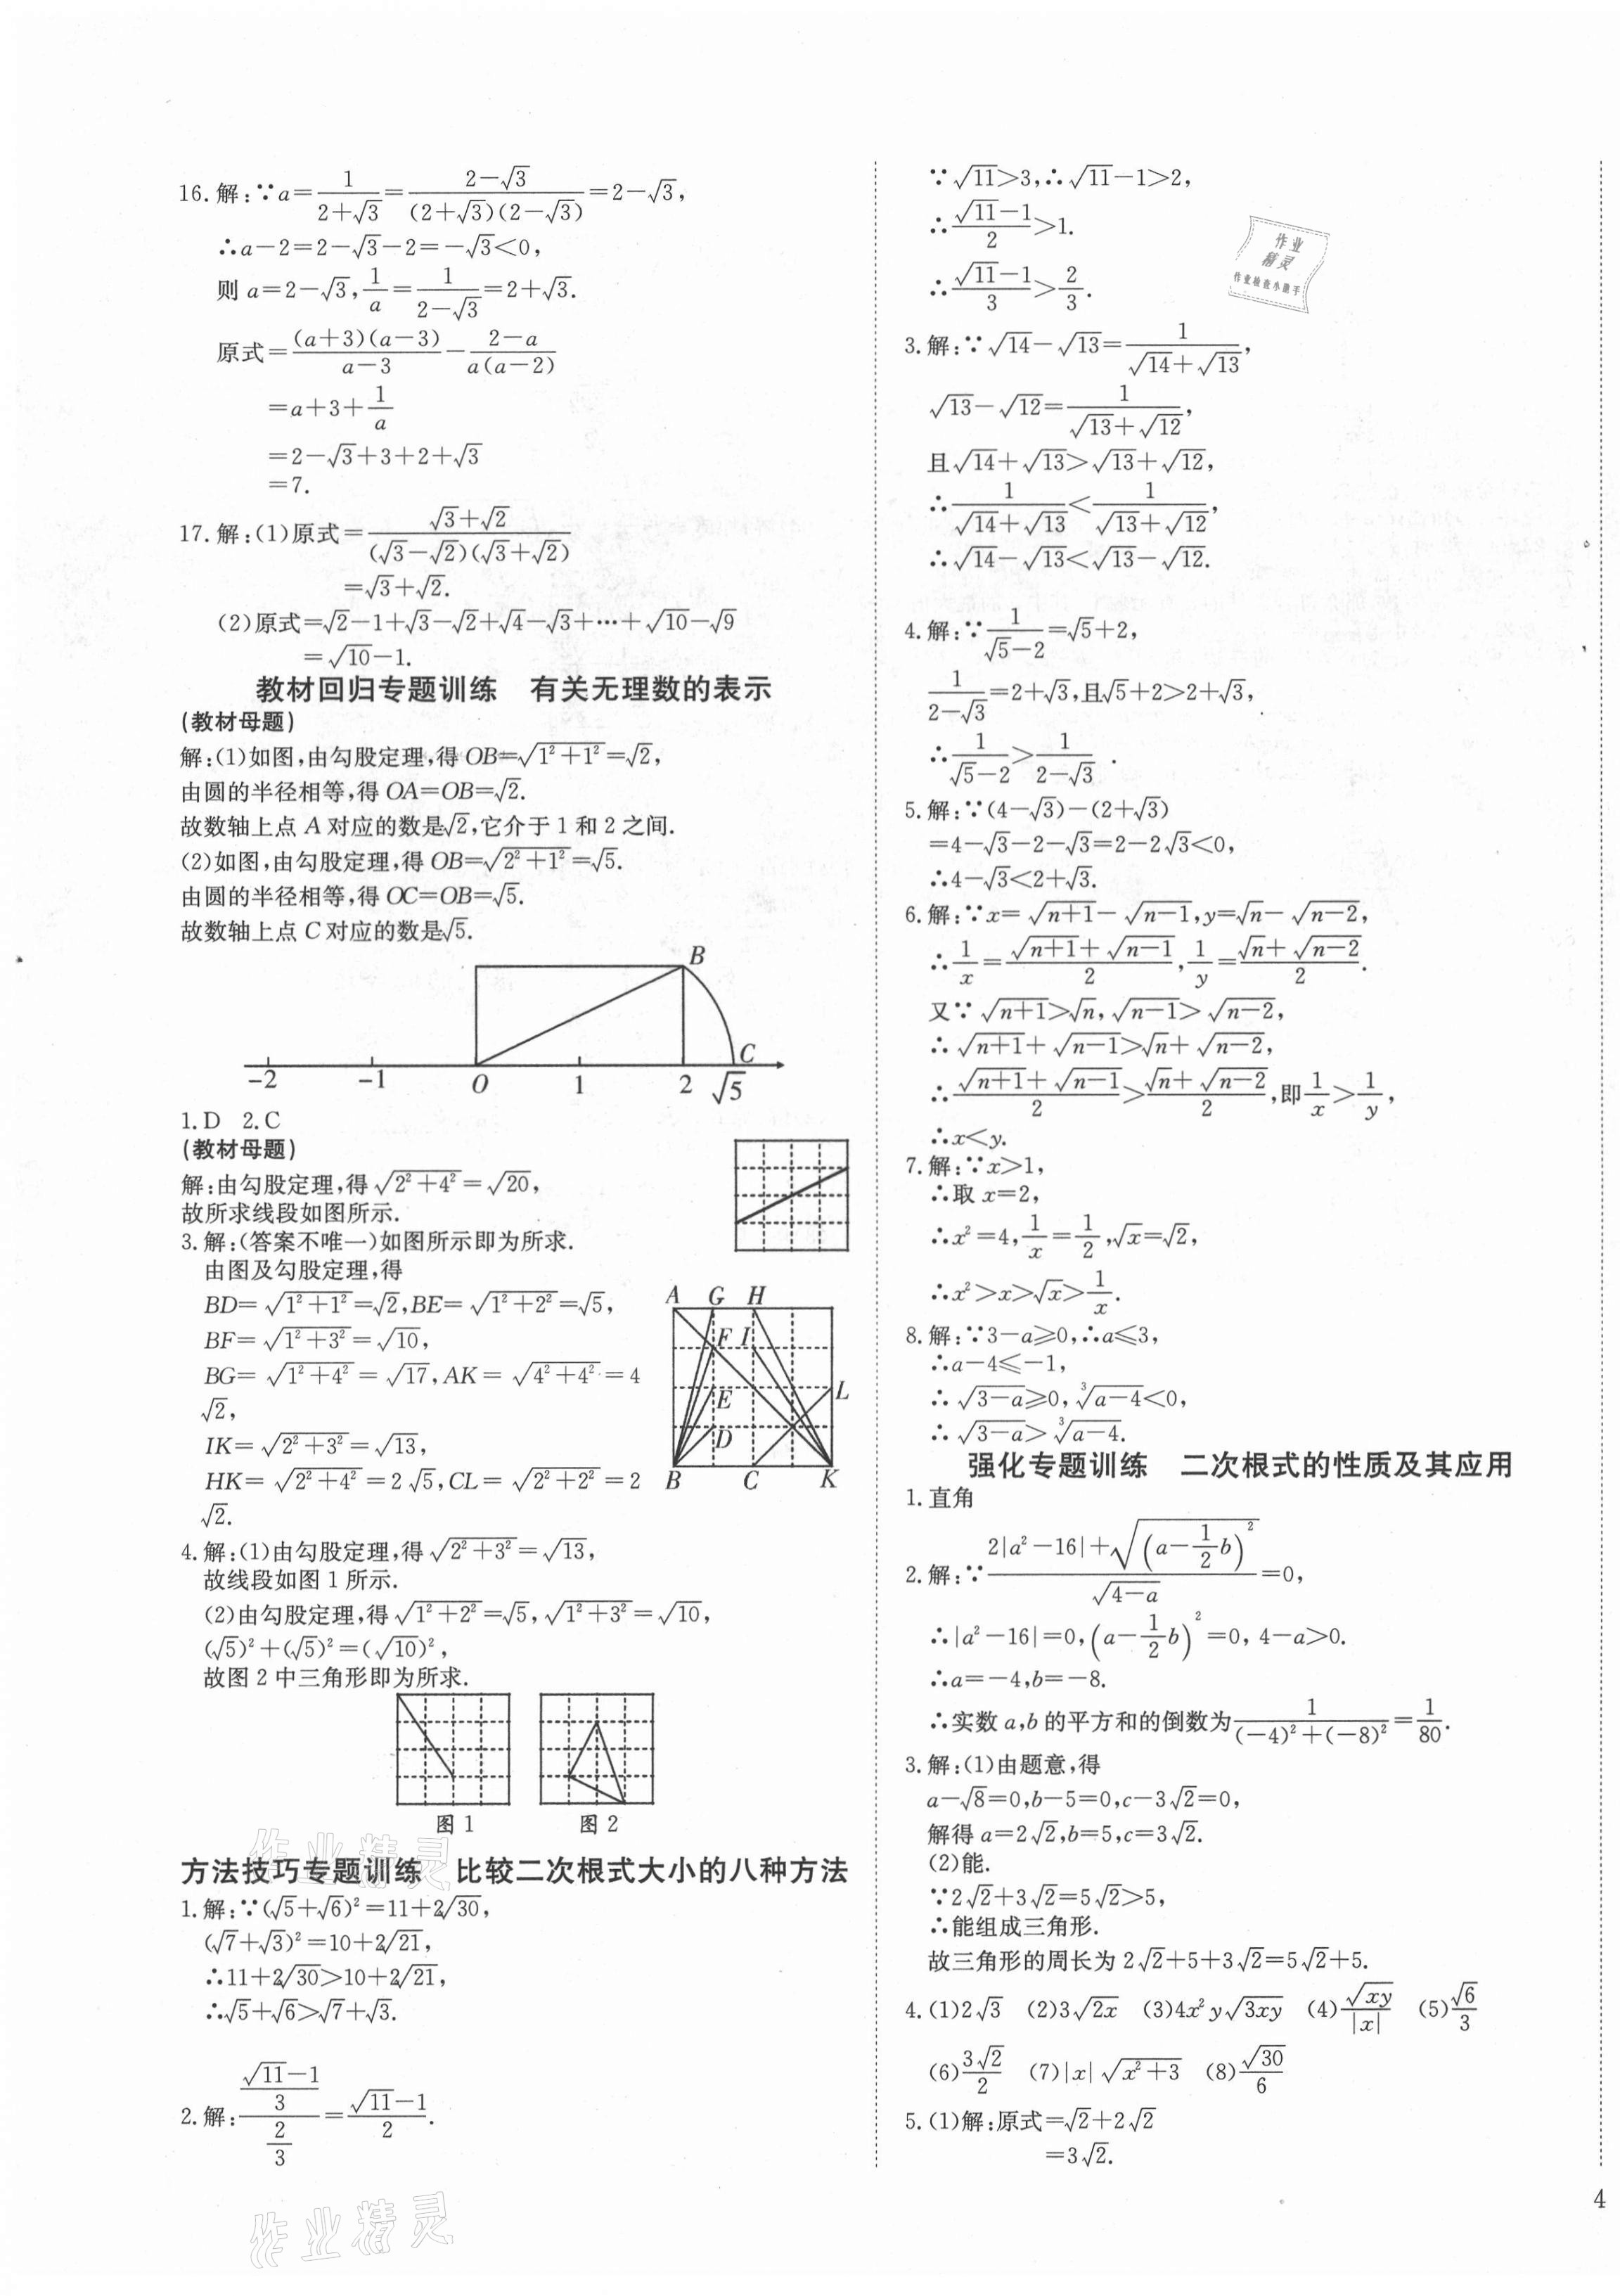 16.解:∵a=1/(2+√3)=(2-√3)/((2+√3)(2-√3))=2-√3,
∴a-2=2-√3-2=-√3<0,
则 a=2-√3,1/a=1/(2-√3)=2+√3.
原式=(a+3)(a-3)/(a-3)-(2-a)/(a(a-2))
=a+3+1/a
=2-√3+3+2+√3
=7.
17.解:(1)原式=(√3+√2)/((√3-√2)(√3+√2))
=√3+√2.
(2)原式=√2-1+√3-√2+√4-√3+…+√10-√9
=√10-1.
教材回归专题训练 有关无理数的表示
(教材母题)
解:(1)如图,由勾股定理,得 OB=√(1²+1²)=√2,
由圆的半径相等,得 OA=OB=√2.
故数轴上点 A 对应的数是√2,它介于 1 和 2 之间.
(2)如图,由勾股定理,得 OB=√(2²+1²)=√5.
由圆的半径相等,得 OC=OB=√5.
故数轴上点 C 对应的数是√5.
B
C
-2 -1 O 1 2 √5
1.D 2.C
(教材母题)
解:由勾股定理,得√(2²+4²)=√20,
故所求线段如图所示.
3.解:(答案不唯一)如图所示即为所求.
由图及勾股定理,得
BD=√(1²+1²)=√2,BE=√(1²+2²)=√5,
BF=√(1²+3²)=√10,
BG=√(1²+4²)=√17,AK=√(4²+4²)=4
√2,
IK=√(2²+3²)=√13,
HK=√(2²+4²)=2√5,CL=√(2²+2²)=2
√2.
A G H
F I
E L
D
B C K
4.解:(1)由勾股定理,得√(2²+3²)=√13,
故线段如图 1 所示.
(2)由勾股定理,得√(1²+2²)=√5,√(1²+3²)=√10,
(√5)²+(√5)²=(√10)²,
故图 2 中三角形即为所求.
图 1 图 2
方法技巧专题训练 比较二次根式大小的八种方法
1.解:∵(√5+√6)²=11+2√30,
(√7+√3)²=10+2√21,
∴11+2√30>10+2√21,
∴√5+√6>√7+√3.
2.解:((√11-1)/3)/(2/3)=(√11-1)/2.
∵√11>3,∴√11-1>2,
∴(√11-1)/2>1.
∴(√11-1)/3>2/3.
3.解:∵√14-√13=1/(√14+√13),
√13-√12=1/(√13+√12),
且√14+√13>√13+√12,
∴1/(√14+√13)<1/(√13+√12),
∴√14-√13<√13-√12.
4.解:∵1/(√5-2)=√5+2,
1/(2-√3)=2+√3,且√5+2>2+√3,
∴1/(√5-2)>1/(2-√3).
5.解:∵(4-√3)-(2+√3)
=4-√3-2-√3=2-2√3<0,
∴4-√3<2+√3.
6.解:∵x=√(n+1)-√(n-1),y=√n-√(n-2),
∴1/x=(√(n+1)+√(n-1))/2,1/y=(√n+√(n-2))/2.
又∵√(n+1)>√n,√(n-1)>√(n-2),
∴√(n+1)+√(n-1)>√n+√(n-2),
∴(√(n+1)+√(n-1))/2>(√n+√(n-2))/2,即1/x>1/y,
∴x<y.
7.解:∵x>1,
∴取 x=2,
∴x²=4,1/x=1/2,√x=√2,
∴x²>x>√x>1/x.
8.解:∵3-a≥0,∴a≤3,
∴a-4≤-1,
∴√(3-a)≥0,∛(a-4)<0,
∴√(3-a)>∛(a-4).
强化专题训练 二次根式的性质及其应用
1.直角
2.解:∵(2|a²-16|+√((a-1/2b)²))/√(4-a)=0,
∴|a²-16|=0,(a-1/2b)²=0, 4-a>0.
∴a=-4,b=-8.
∴实数 a,b 的平方和的倒数为1/((-4)²+(-8)²)=1/80.
3.解:(1)由题意,得
a-√8=0,b-5=0,c-3√2=0,
解得 a=2√2,b=5,c=3√2.
(2)能.
∵2√2+3√2=5√2>5,
∴能组成三角形.
故三角形的周长为 2√2+5+3√2=5√2+5.
4.(1)2√3 (2)3√(2x) (3)4x²y√(3xy) (4)√(xy)/|x| (5)√6/3
(6)3√2/2 (7)|x|√(x²+3) (8)√30/6
5.(1)解:原式=√2+2√2
=3√2.
4
作业
精灵
作业检查小助手
作业精灵
作业精灵